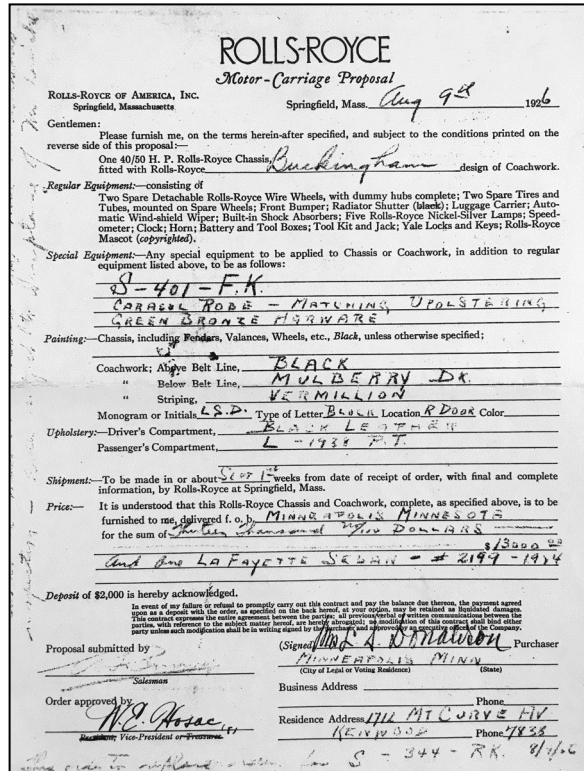 ROLLS-ROYCE
Motor-Carriage Proposal
ROLLS-ROYCE OF AMERICA, INC.
Springfield, Massachusetts
Springfield, Mass. Aug 9th 1926
Gentlemen:
Please furnish me, on the terms herein-after specified, and subject to the conditions printed on the
reverse side of this proposal:—
One 40/50 H. P. Rolls-Royce Chassis,
fitted with Rolls-Royce Buckingham design of Coachwork.
Regular Equipment:—consisting of
Two Spare Detachable Rolls-Royce Wire Wheels, with dummy hubs complete; Two Spare Tires and
Tubes, mounted on Spare Wheels; Front Bumper; Radiator Shutter (black); Luggage Carrier; Auto-
matic Wind-shield Wiper; Built-in Shock Absorbers; Five Rolls-Royce Nickel-Silver Lamps; Speed-
ometer; Clock; Horn; Battery and Tool Boxes; Tool Kit and Jack; Yale Locks and Keys; Rolls-Royce
Mascot (copyrighted).
Special Equipment:—Any special equipment to be applied to Chassis or Coachwork, in addition to regular
equipment listed above, to be as follows:
S-401-F.K.
CARACUL ROBE - MATCHING UPOLSTERING
GREEN BRONZE HARWARE
Painting:—Chassis, including Fenders, Valances, Wheels, etc., Black, unless otherwise specified;
Coachwork; Above Belt Line, BLACK
" Below Belt Line, MULBERRY DK.
" Striping, VERMILLION
Monogram or Initials L.S.D. Type of Letter BLOCK Location R DOOR Color
Upholstery:—Driver's Compartment, BLACK LEATHER
Passenger's Compartment, L-1938 P.T.
Shipment:—To be made in or about Sept 1st weeks from date of receipt of order, with final and complete
information, by Rolls-Royce at Springfield, Mass.
Price:— It is understood that this Rolls-Royce Chassis and Coachwork, complete, as specified above, is to be
furnished to me, delivered f. o. b. MINNEAPOLIS MINNESOTE
for the sum of Thirteen thousand no/100 DOLLARS
$13000 00
And One LA FAYETTE SEDAN - # 2199 - 1924
Deposit of $2,000 is hereby acknowledged.
In event of my failure or refusal to promptly carry out this contract and pay the balance due thereon, the payment agreed
upon as a deposit with the order, as specified on the back hereof, at your option, may be retained as liquidated damages.
This contract expresses the entire agreement between the parties; all previous verbal or written communications between the
parties, with reference to the subject matter hereof, are hereby abrogated; no modification of this contract shall bind either
party unless such modification shall be in writing signed by the purchaser and approved by an executive officer of the Company.
Proposal submitted by
Salesman
(Signed) Mrs L S Donaldson Purchaser
MINNEAPOLIS MINN
(City of Legal or Voting Residence) (State)
Business Address
Phone
Order approved by
W.E. Hosac
President, Vice-President or Treasurer
Residence Address 1712 MT CURVE AV
KENWOOD Phone 7835
S-344-RK. 8/9/26